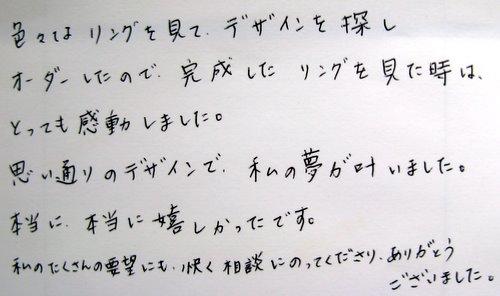 色々なリングを見て、デザインを探し
オーダーしたので、完成したリングを見た時は、
とっても感動しました。
思い通りのデザインで、私の夢が叶いました。
本当に、本当に嬉しかったです。
私のたくさんの要望にも、快く相談にのってくださり、ありがとう
ございました。